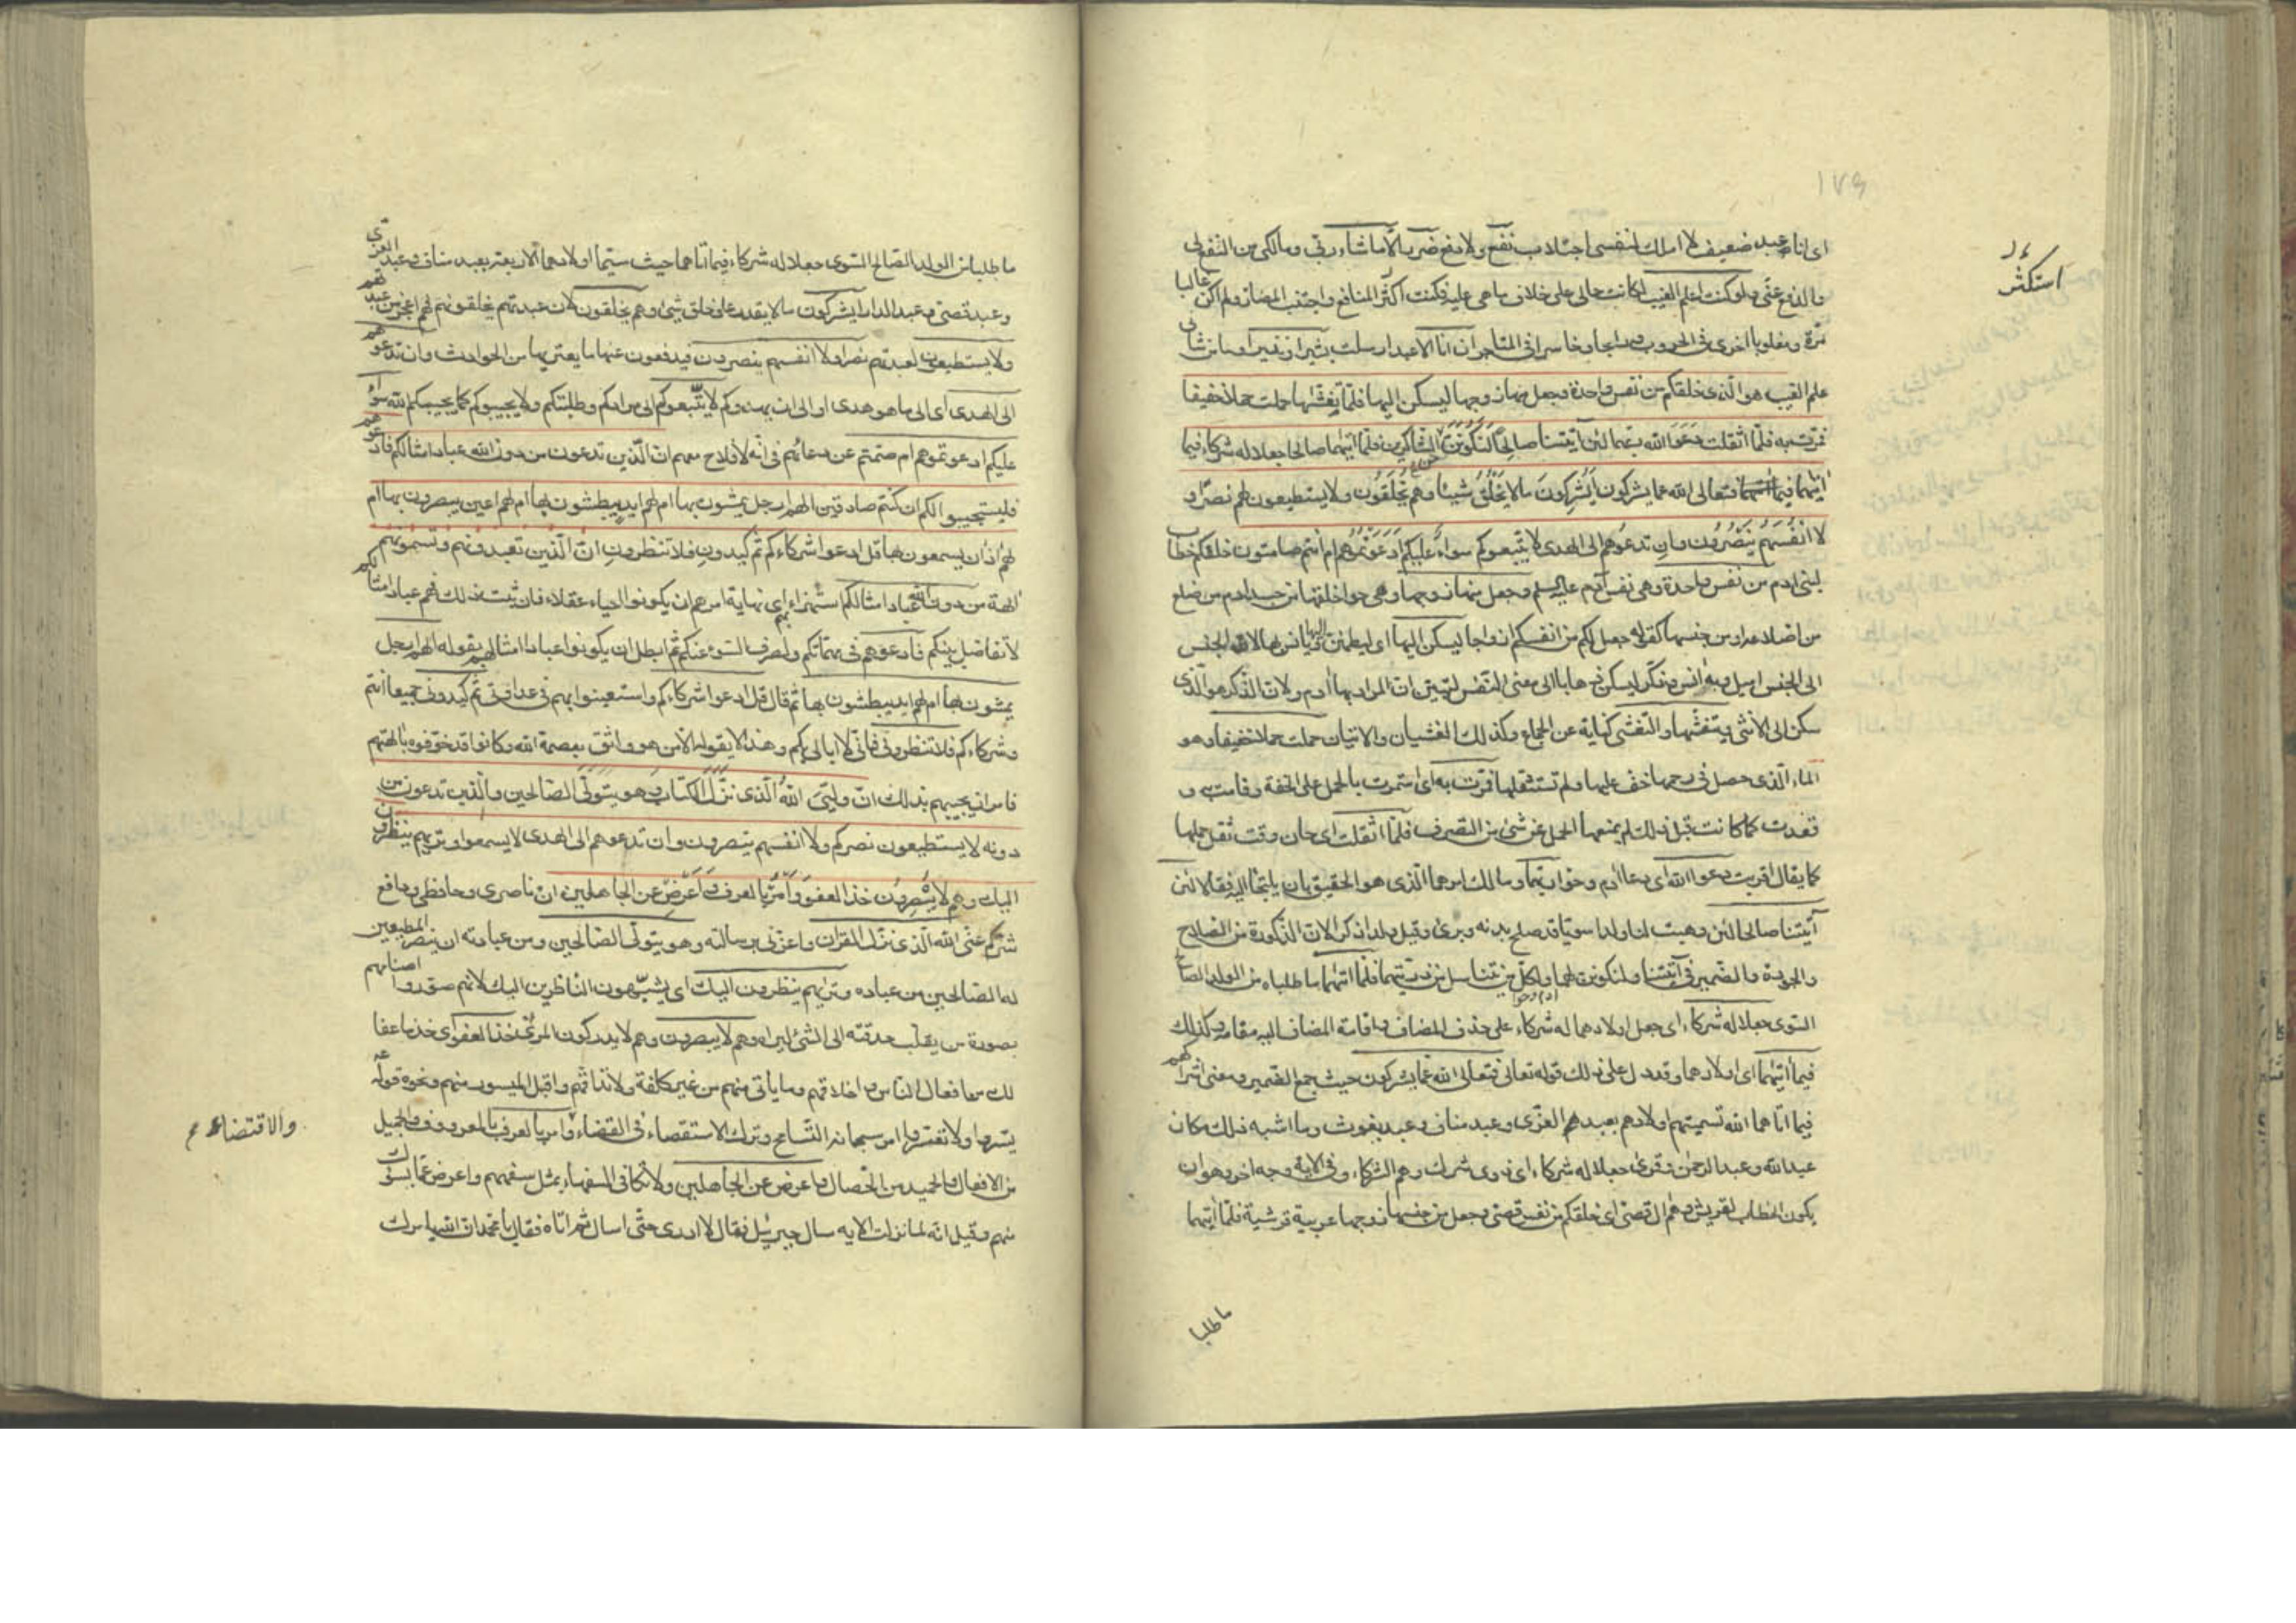 ١٧٩
اى انا عبد ضعيف لا املك لنفسى اجتلاب نفع ولا دفع ضرر الّا ما شاء ربّى ومالكى من النفع لى
والدفع عنّى ولو كنت اعلم الغيب لكانت حالى على خلاف ما هى عليه فكنت اكثر المنافع واجتنب المضارّ ولم اكن غالبا
استكثر
مرّة ومغلوبا اخرى فى الحروب ورابحا وخاسرا فى المتاجر ان انا الا عبد ارسلت بشيرا ونذيرا وما من شانى
علم الغيب هو الّذى خلقكم من نفس واحدة وجعل منها زوجها ليسكن اليها فلمّا تغشّٰيها حملت حملا خفيفا
فمرّت به فلمّا اثقلت دَعَوَا الله ربّهما لئن آتيتنا صالحًا لَنَكُونَنَّ من الشاكرين فلمّا اتيٰهما صالحا جعلا له شركاء فيما
اتيٰهما فتعالى الله عما يشركون أَيُشْرِكُونَ مالا يَخْلُقُ شيئا وهم يُخْلَقُون ولا يستطيعون لهم نصرًا و
لا انْفُسَهُمْ يَنْصُرُون وان تدعُوهم الى الهدى لا يتّبعوكم سواءٌ عليكم أَدَعَوْتُمُوهم ام انتم صامتون خلقكم خطاب
لبنى ادم من نفس واحدة وهى نفس آدم عليه السلم وجعل منها زوجها وهى حوا خلقها من جسد ادم من ضلع
من اضلاعه او من جنسها كقوله جعل لكم من انفسكم ازواجا ليسكن اليها اى ليطمئنّ اليها ويانس بها لان الجنس
الى الجنس اميل وبه آنس وذكّر ليسكن ذهابا الى معنى النفس ليتبين انّ المراد بها ادم ولان الذكر هو الّذى
سكن الى الانثى ويتغشّيها والتغشّى كناية عن الجماع وكذلك الغشيان والاتيان حملت حملا خفيفا وهو
الماء الّذى حصل فى رحمها خفّ عليها ولم تستثقلها فمرّت به اى استمرت بالحمل على الخفة وقامت به و
قعدت كما كانت قبل ذلك لم يمنعها الحمل عن شئ من التصرف فلمّا اثقلت اى حان وقت ثقل حملها
كما يقال اقربت دعوا الله اى دعا ادم وحوا ربّهما ومالك امرهما الّذى هو الحقيق بان يلتجئا اليه فقالا لئن
آتيتنا صالحا لئن وهبت لنا ولدا سويّا قد صلح بدنه وبرئ وقيل ولدا ذكرا لانّ الذكورة من الصلاح
والجودة والضمير فى آتيتنا ولنكوننّ لهما ولكلّ من تناسل من ذريّتهما فلمّا اتٰيهما ما طلباه من الولد الصالح
السّوى جعلا له شركاء اى جعل اولادهما له شركاء على حذف المضاف واقامة المضاف اليه مقامه وكذلك
فيما اتيٰهما اى اولادهما وقد دل على ذلك قوله تعالى فتعالى الله عمّا يشركون حيث جمع الضمير ومعنى اشراكهم
فيما اتاهما الله تسميتهم اولادهم بعبد العزّى وعبد مناف وعبد يغوث وما اشبه ذلك مكان
عبد الله وعبد الرحمن وقرئ جعلا له شركاء اى ذوى شرك وهم الشركاء وفى الآية وجه اخر وهو ان
يكون الخطاب لقريش وهم ال قصىّ اى خلقكم من نفس قصىّ وجعل من جنسها زوجها عربية قرشية فلمّا اتيٰهما
ما طلبا
ما طلبا من الولد الصّالح السّوى جعلا له شركاء فيما اتاهما حيث سمّيا اولادهما الاربعة بعبد مناف وعبد العزّى
وعبد قصىّ وعبد الدار ايشركون ما لا يقدر على خلق شئ وهم يخلقون لان عبدتهم يخلقونهم فهم اعجز من عبدتهم
ولا يستطيعون لعبدتهم نصرا ولا انفسهم ينصرون فيدفعون عنها ما يعتريها من الحوادث وان تدعوهم
الى الهدى اى الى ما هو هدى او الى ان يهدوكم لا يتّبعوكم الى مرادكم وطلبتكم ولا يجيبوكم كما يجيبكم الله سواء
عليكم ادعوتموهم ام صمتّم عن دعائهم فى انّه لا فلاح معهم انّ الّذين تدعون من دون الله عباد امثالكم فادعوهم
فليستجيبوا لكم ان كنتم صادقين الهم ارجل يمشون بها ام لهم ايد يبطشون بها ام لهم اعين يبصرون بها ام
لهم اذان يسمعون بها قل ادعوا شركاءكم ثم كيدون فلا تنظرون انّ الّذين تعبدونهم وتسمّونهم
الهة من دون الله عباد امثالكم استهزاء بهم اى نهاية امرهم ان يكونوا احياء عقلاء فان ثبت ذلك فهم عباد امثالكم
لا تفاضل بينكم فادعوهم فى مهمّاتكم ولصرف السّوء عنكم ثمّ ابطل ان يكونوا عبادا امثالهم بقوله الهم ارجل
يمشون بها ام لهم ايد يبطشون بها ثم قال قل ادعوا شركاءكم واستعينوا بهم فى عداوتى ثم كيدونى جميعا انتم
وشركاءكم فلا تنظرونى فانّى لا ابالى بكم وهذا لا يقوله الّا من هو واثق بعصمة الله وكانوا قد خوّفوه بالهتهم
فامر ان يجيبهم بذلك انّ وليّىَ اللهُ الّذى نزّل الكتاب وهو يتولّى الصّالحين والّذين تدعون من
دونه لا يستطيعون نصركم ولا انفسهم ينصرون وان تدعوهم الى الهدى لا يسمعوا وتريٰهم ينظرون
اليك وهم لا يُبْصِرُون خذ العفوَ وَأْمُرْ بالعرف وَأَعْرِضْ عن الجاهلين انّ ناصرى وحافظى ودافع
شرّكم عنّى الله الّذى نزّل القران واعزّنى برسالته وهو يتولّى الصّالحين ومن عبادته ان ينصر المطيعين
له الصّالحين من عباده وتريٰهم ينظرون اليك اى يشبّهون النّاظرين اليك لانهم صوّروا اصنامهم
بصورة من يقلّب حدقته الى الشئ ليراه وهم لا يبصرون وهم لا يدركون المرئىّ خذ العفو اى خذ ما عفا
لك من افعال النّاس واخلاقهم وما ياتى منهم من غير كلفة ولا تداقهم واقبل الميسور منهم ونحوه قوله عم
يسّروا ولا تعسّروا امر سبحانه بالتّسامح وترك الاستقصاء فى القضاء وامر بالعرف بالمعروف والجميل
والاقتضاء
من الافعال والحميد من الخصال واعرض عن الجاهلين ولا تكافى السّفهاء بمثل سفههم واعرض عمّا يسوءك
منهم وقيل انّه لما نزلت الآيه سال جبرئيل فقال لا ادرى حتّى اسال ثم اتاه فقال يا محمّد ان الله يامرك